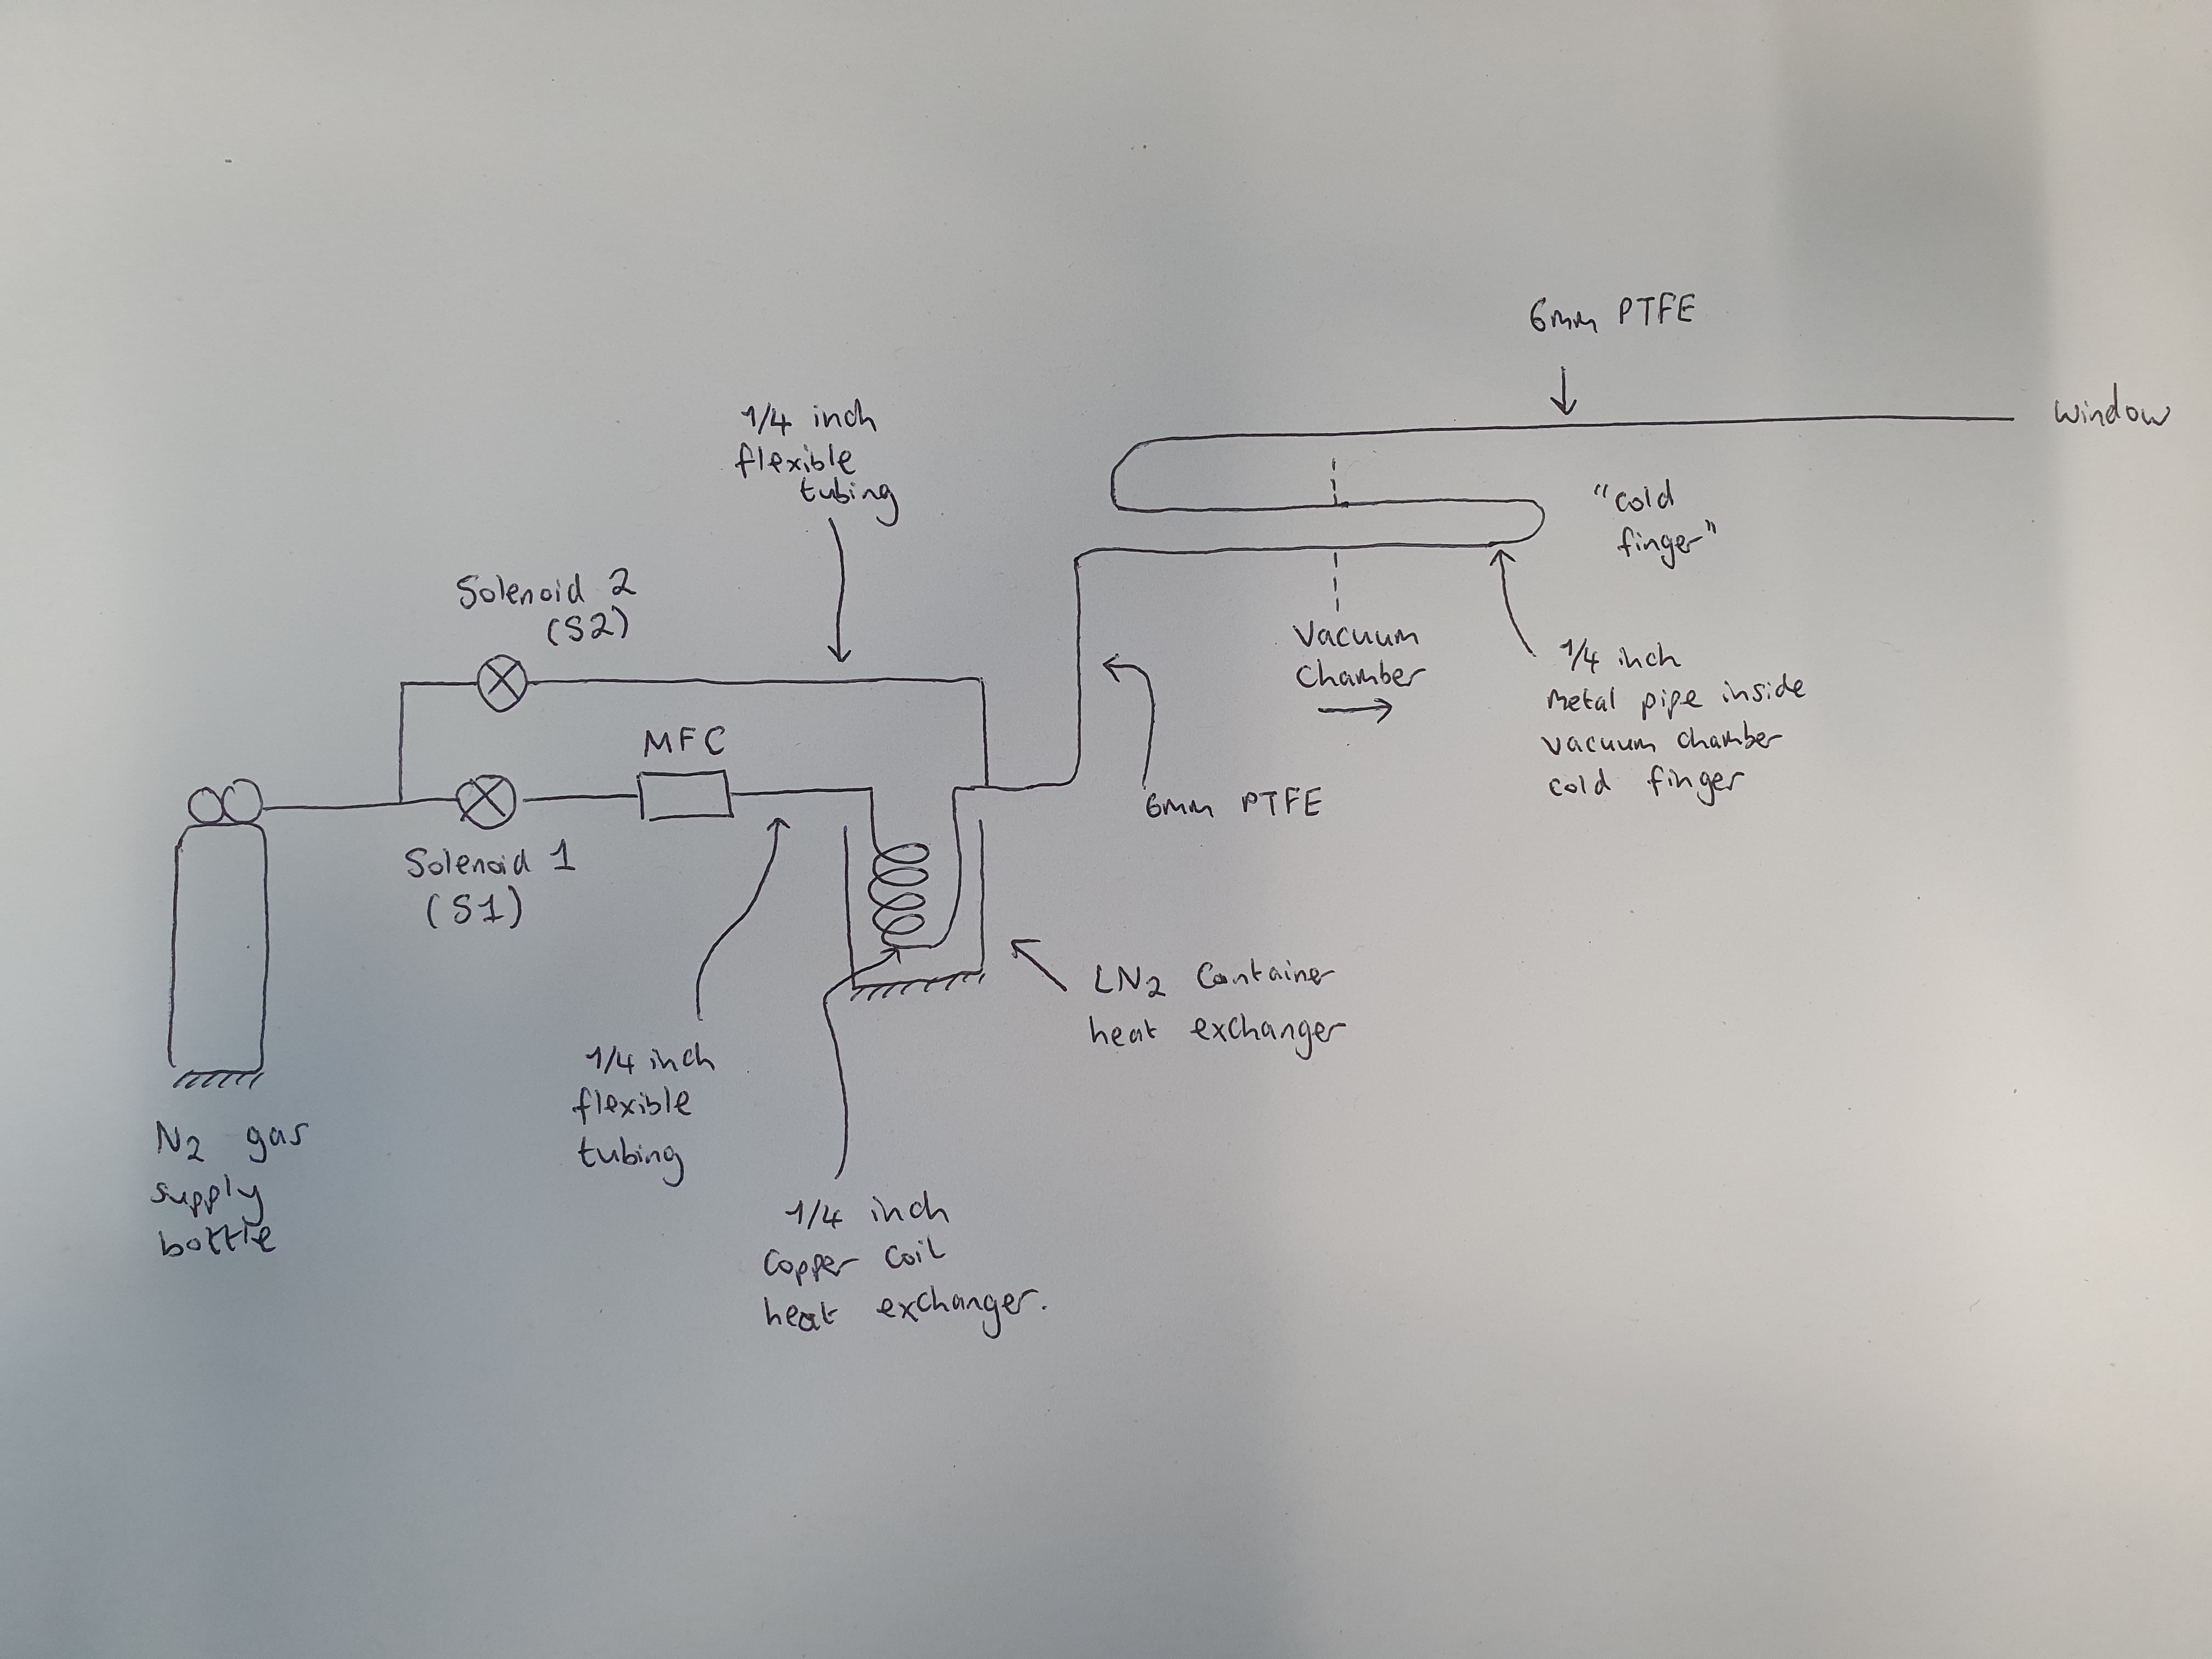 6mm PTFE
window
1/4 inch
flexible
tubing
"cold
finger"
Solenoid 2
(S2)
Vacuum
Chamber
1/4 inch
metal pipe inside
vacuum chamber
cold finger
MFC
6mm PTFE
Solenoid 1
(S1)
LN2 Container
heat exchanger
1/4 inch
flexible
tubing
N2 gas
supply
bottle
1/4 inch
Copper Coil
heat exchanger.